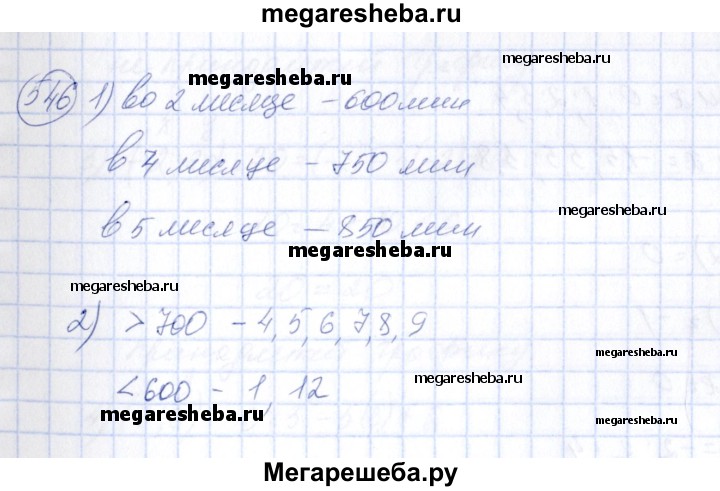 megaresheba.ru
megaresheba.ru
megaresheba.ru
546 1) во 2 месяце - 600 мин
в 4 месяце - 750 мин
megaresheba.ru
в 5 месяце - 850 мин
megaresheba.ru
megaresheba.ru
2) > 700 - 4, 5, 6, 7, 8, 9
megaresheba.ru
megaresheba.ru
< 600 - 1, 12
megaresheba.ru
megaresheba.ru
Мегарешеба.ру